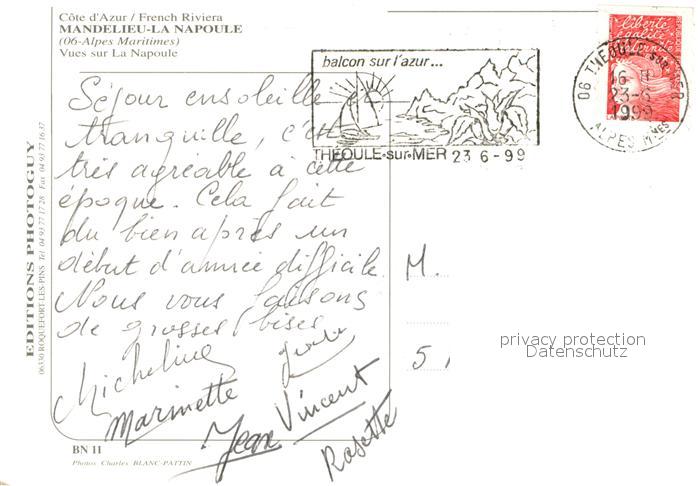 Côte d'Azur / French Riviera
MANDELIEU-LA NAPOULE
(06-Alpes Maritimes)
Vues sur La Napoule
balcon sur l'azur...
THÉOULE-sur-MER 23 6-99
liberté
égalité
fraternité
06 THEOULE-sur-MER
16 H
23-6
1999
ALPES Mmes
Séjour ensoleillé et
tranquille, c'est
très agréable à cette
époque. Cela fait
du bien après un
début d'année difficile.
Nous vous faisons
de grosses bises
Micheline
Marinette
Jean Vincent
Rosette
M.
5,
privacy protection
Datenschutz
EDITIONS PHOTOGUY
06330 ROQUEFORT-LES-PINS Tel 04 93 77 17 28 Fax 04 93 77 16 37
BN 11
Photos Charles BLANC-PATTIN